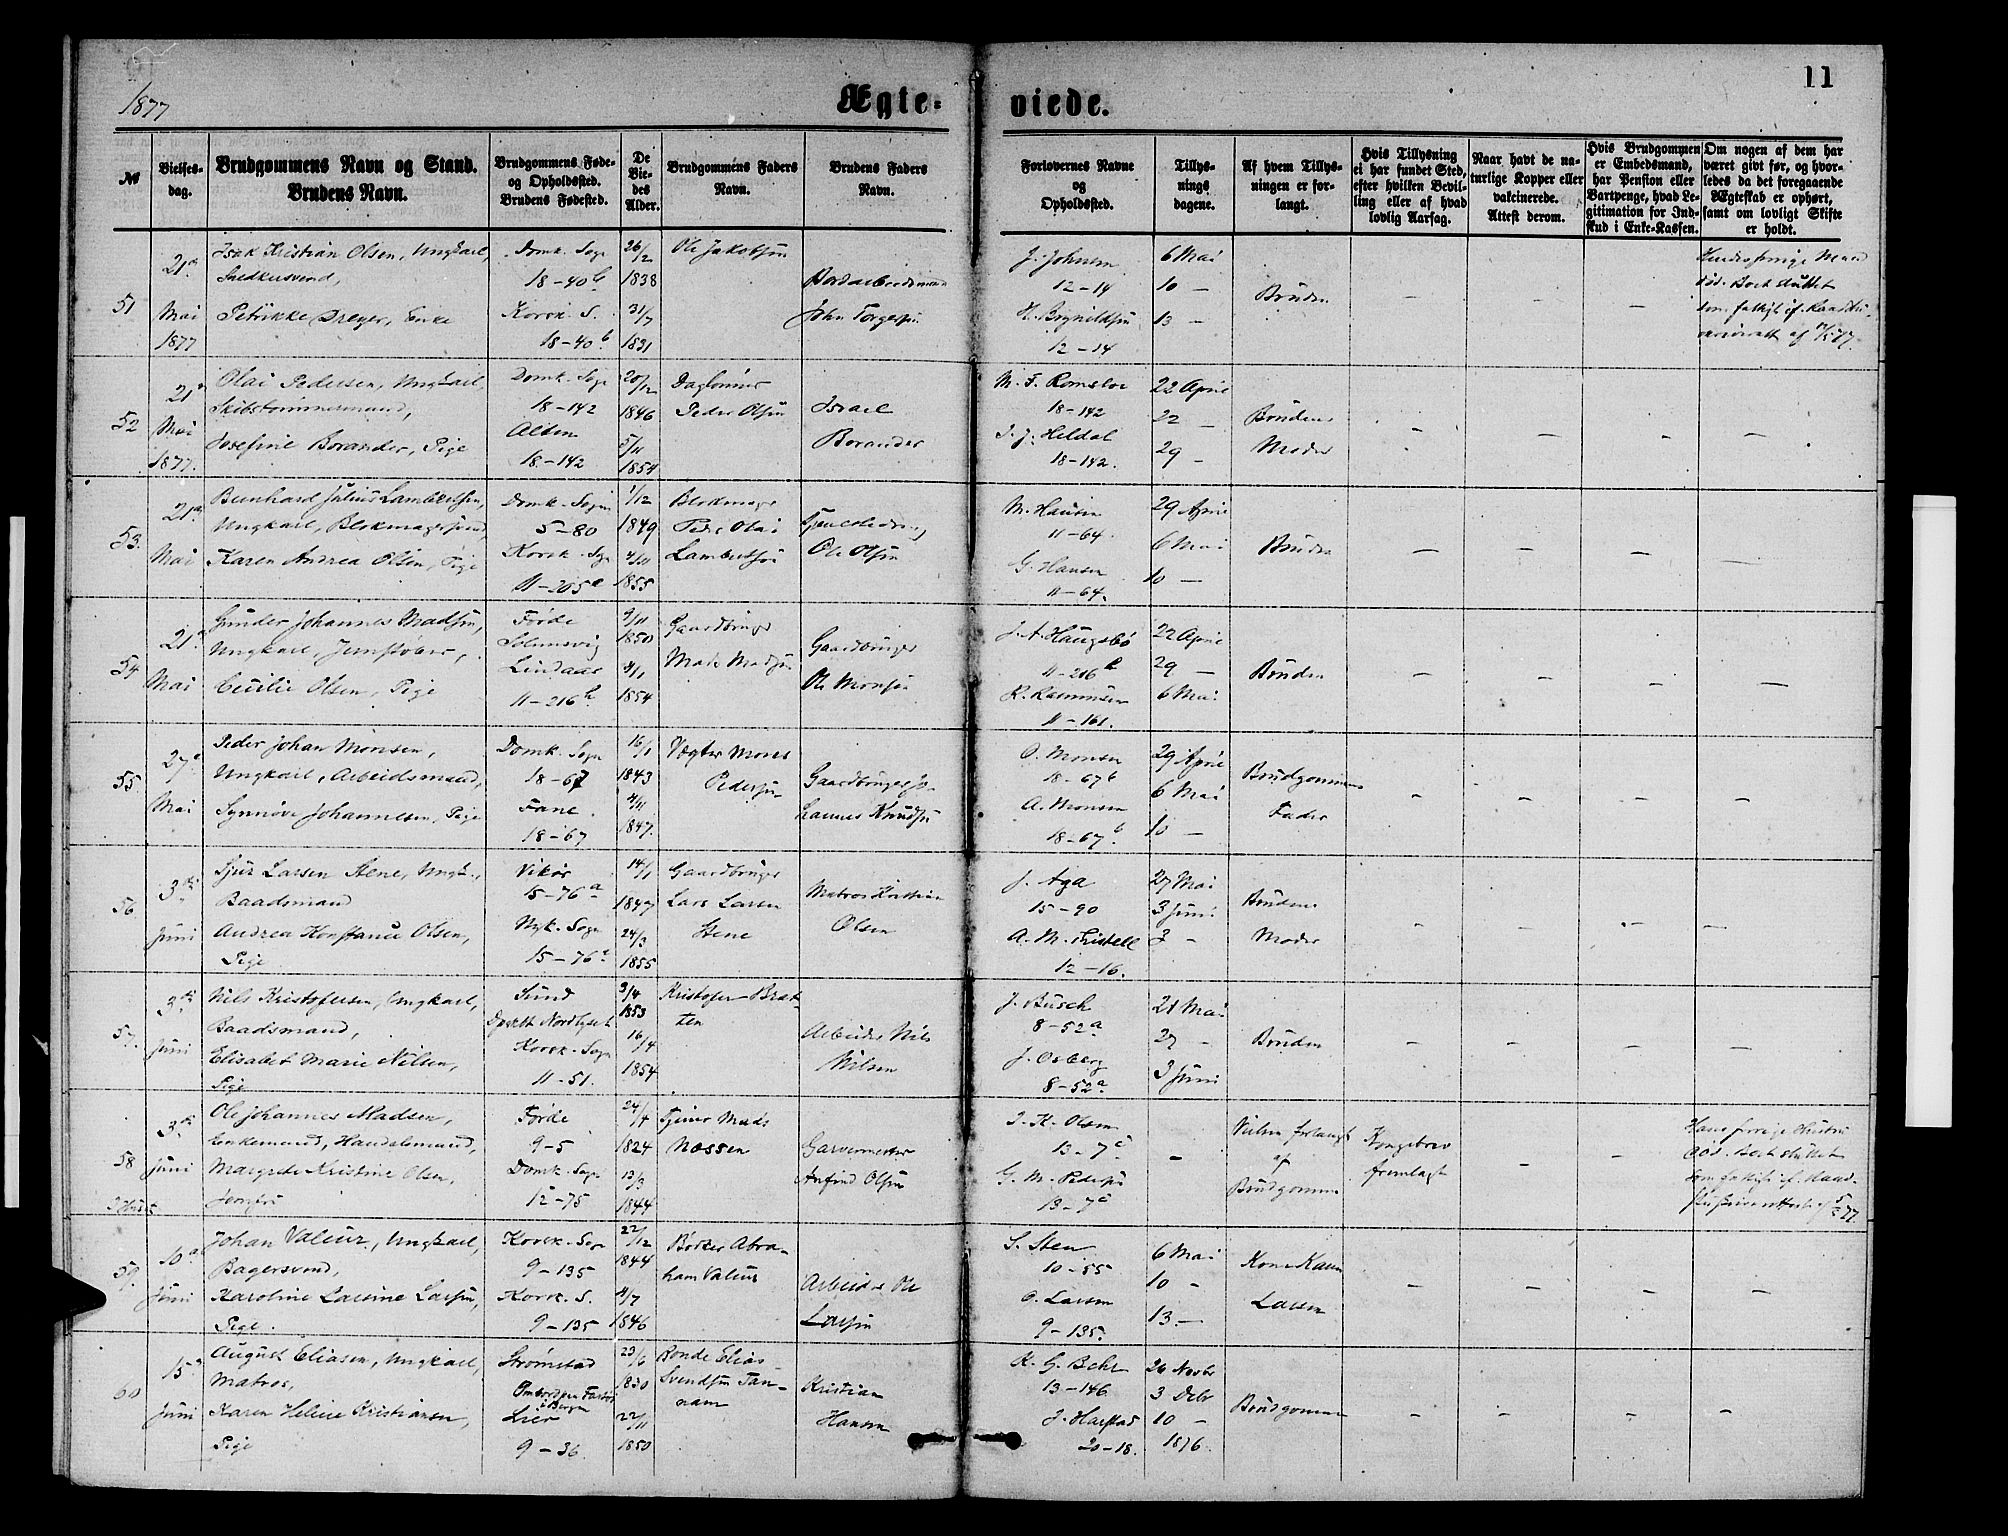 11
1877
Ægte-
viede.
№
Vielses-
dag.
Brudgommens Navn og Stand.
Brudens Navn.
Brudgommens Føde-
og Opholdssted.
Brudens Fødested.
De
Vie-
des
Alder.
Brudgommens Faders
Navn.
Brudens Faders
Navn.
Forlovernes Navne
og
Opholdssted.
Tillys-
nings
dagene.
Af hvem Tillys-
ningen er for-
langt.
Hvis Tillysning
ei har fundet Sted,
efter hvilken Bevil-
ling eller af hvad
lovlig Aarsag.
Naar havt de na-
turlige Kopper eller
vakcinerede.
Attest derom.
Hvis Brudgommen
er Embedsmand,
har Pension eller
Vartpenge, hvad Le-
gitimation for Ind-
skud i Enke-Kassen.
Om nogen af dem har
været givt før, og hvor-
ledes da det foregaaende
Ægteskab er ophørt,
samt om lovligt Skifte
er holdt.
51
21
Mai
1877
Isak Kristian Olsen, Ungkarl,
Petrikke Dreyer, Enke
Domk. Sogn
18-40 b
Korsk. S.
18-40 b
26/2
1838
31/7
1831
Ole Jakobsen
John Torgersen
J. Johnsen
12-14
H. Brynildsen
12-14
6 Mai
10 -
13 -
Bruden
-
-
-
52
21
Mai
1877.
Olai Pedersen, Ungkarl,
Skibstømmermand,
Josefine Borander, Pige
Domk. Sogn
18-142
Alten
18-142
20/12
1846
5/11
1854
Daglønner
Peder Olsen
Israel
Borander
M. F. Romsloe
18-142
I. J. Heldal
18-142.
22 April
22 -
29 -
Brudens
Moder
-
-
-
-
53.
21
Mai
Bernhard Julius Lambertsen,
Ungkarl, Blokmagersvend,
Karen Andrea Olsen, Pige
Domk. Sogn
5-80
Korsk. Sogn
11-205 a
1/12
1849
4/11
1855
Blokmager
Peder Olai
Lambertsen
Ole Olsen
M. Hansen
11-64.
G. Hansen
11-64.
29 April
6 Mai
10 -
Bruden
-
-
-
-
54
21
Mai
Gunder Johannes Madsen,
Ungkarl, Jernstøber,
Cecilie Olsen, Pige
Førde
Lindaas
11-216 b
9/11
1850
4/1
1854
Gaardbruger
Mads Madsen
Gaardbruger
Ole Monsen
J. A. Haugsbø
11-216 b
K. Rasmussen
11-161.
22 April
29 -
6 Mai
Bruden
-
-
-
-
55
27
Mai
Peder Johan Monsen,
Ungkarl, Arbeidsmand,
Synnøve Johannesen, Pige
Domk. Sogn
18-67
Fane
18-67
16/1
1843
4/11
1847.
Vægter Mons
Pedersen
Gaardbruger Jo-
hannes Knudsen
O. Monsen
18-67 b
A. Monsen
18-67 b
29 April
6 Mai
10 -
Brudgommens
Fader
-
-
-
-
56
3die
Juni
Sjur Larsen Stene, Ungk.,
Baadsmand
Andrea Konstance Olsen,
Pige
Vikør
15-76 a
Nyk. Sogn
15-76 a
14/1
1847
24/3
1855
Gaardbruger
Lars Larsen
Stene
Matros Kristian
Olsen
J. Aga
15-90
A. M. Tistell
12-16.
27 Mai
3 Juni
3 -
Brudens
Moder
-
-
-
-
57.
3die
Juni
Nils Kristofersen, Ungkarl,
Baadsmand,
Elisabet Marie Nilsen,
Pige
Sund
Korsk. Sogn
11-51.
3/4
1853
16/4
1854
Kristofer Brat-
ten
Arbeider Nils
Nilsen
J. Busch
8-52 a
J. Osberg
8-52 a
21 Mai
27 -
3 Juni
Bruden
-
-
-
-
58
3die
Juni
Ole Johannes Madsen,
Enkemand, Handelsmand,
Margrete Kristine Olsen,
Jomfru
Førde
9-5
Domk. Sogn
12-75
24/4
1824
13/3
1844
Mads
Nøssen
Garvermester
Anfind Olsen
I. K. Olsen
13-7 c
G. M. Pedersen
13-7 c
-
Vielsen forlangt
af
Brudgommen
Kongebrev
fremlagt
-
-
59.
10
Juni
Johan Valeur, Ungkarl,
Bagersvend,
Karoline Larsine Larsen,
Pige.
Korsk. Sogn
9-135
Korsk. S.
9-135
22/12
1844
4/7
1846
Bødker Abra-
ham Valeur
Arbeider Ole
Larsen
S. Sten
10-55
O. Larsen
9-135.
6 Mai
10 -
13. -
Kone Karen
Larsen
-
-
-
-
60
15
Juni
August Eliasen, Ungkarl,
Matros,
Karen Helene Kristiansen,
Pige
Strømstad
Lier
9-36
23/6
1850
22/11
1850
Bonde Elias
Svendsen Tan-
nam
Kristian
Hansen
K. G. Behr
13-146
J. Harstad
20-18.
26 Novbr
3 Debr
10 -
1876.
Brudgommen
-
-
-
-